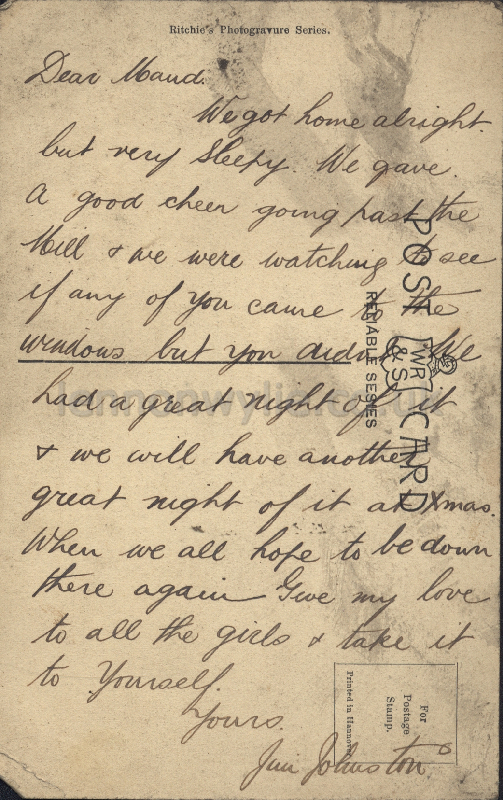 Ritchie's Photogravure Series.
Dear Maud.
We got home alright.
but very Sleepy. We gave.
A good cheer going past the
Mill & we were watching to see
if any of you came to the
windows but you didn't We
had a great night of it
& we will have another
great night of it at Xmas.
When we all hope to be down
there again Give my love
to all the girls & take it
to Yourself.
Yours.
Jim Johnston
POST CARD
WR
& S
RELIABLE SERIES
For
Postage
Stamp.
Printed in Hannover